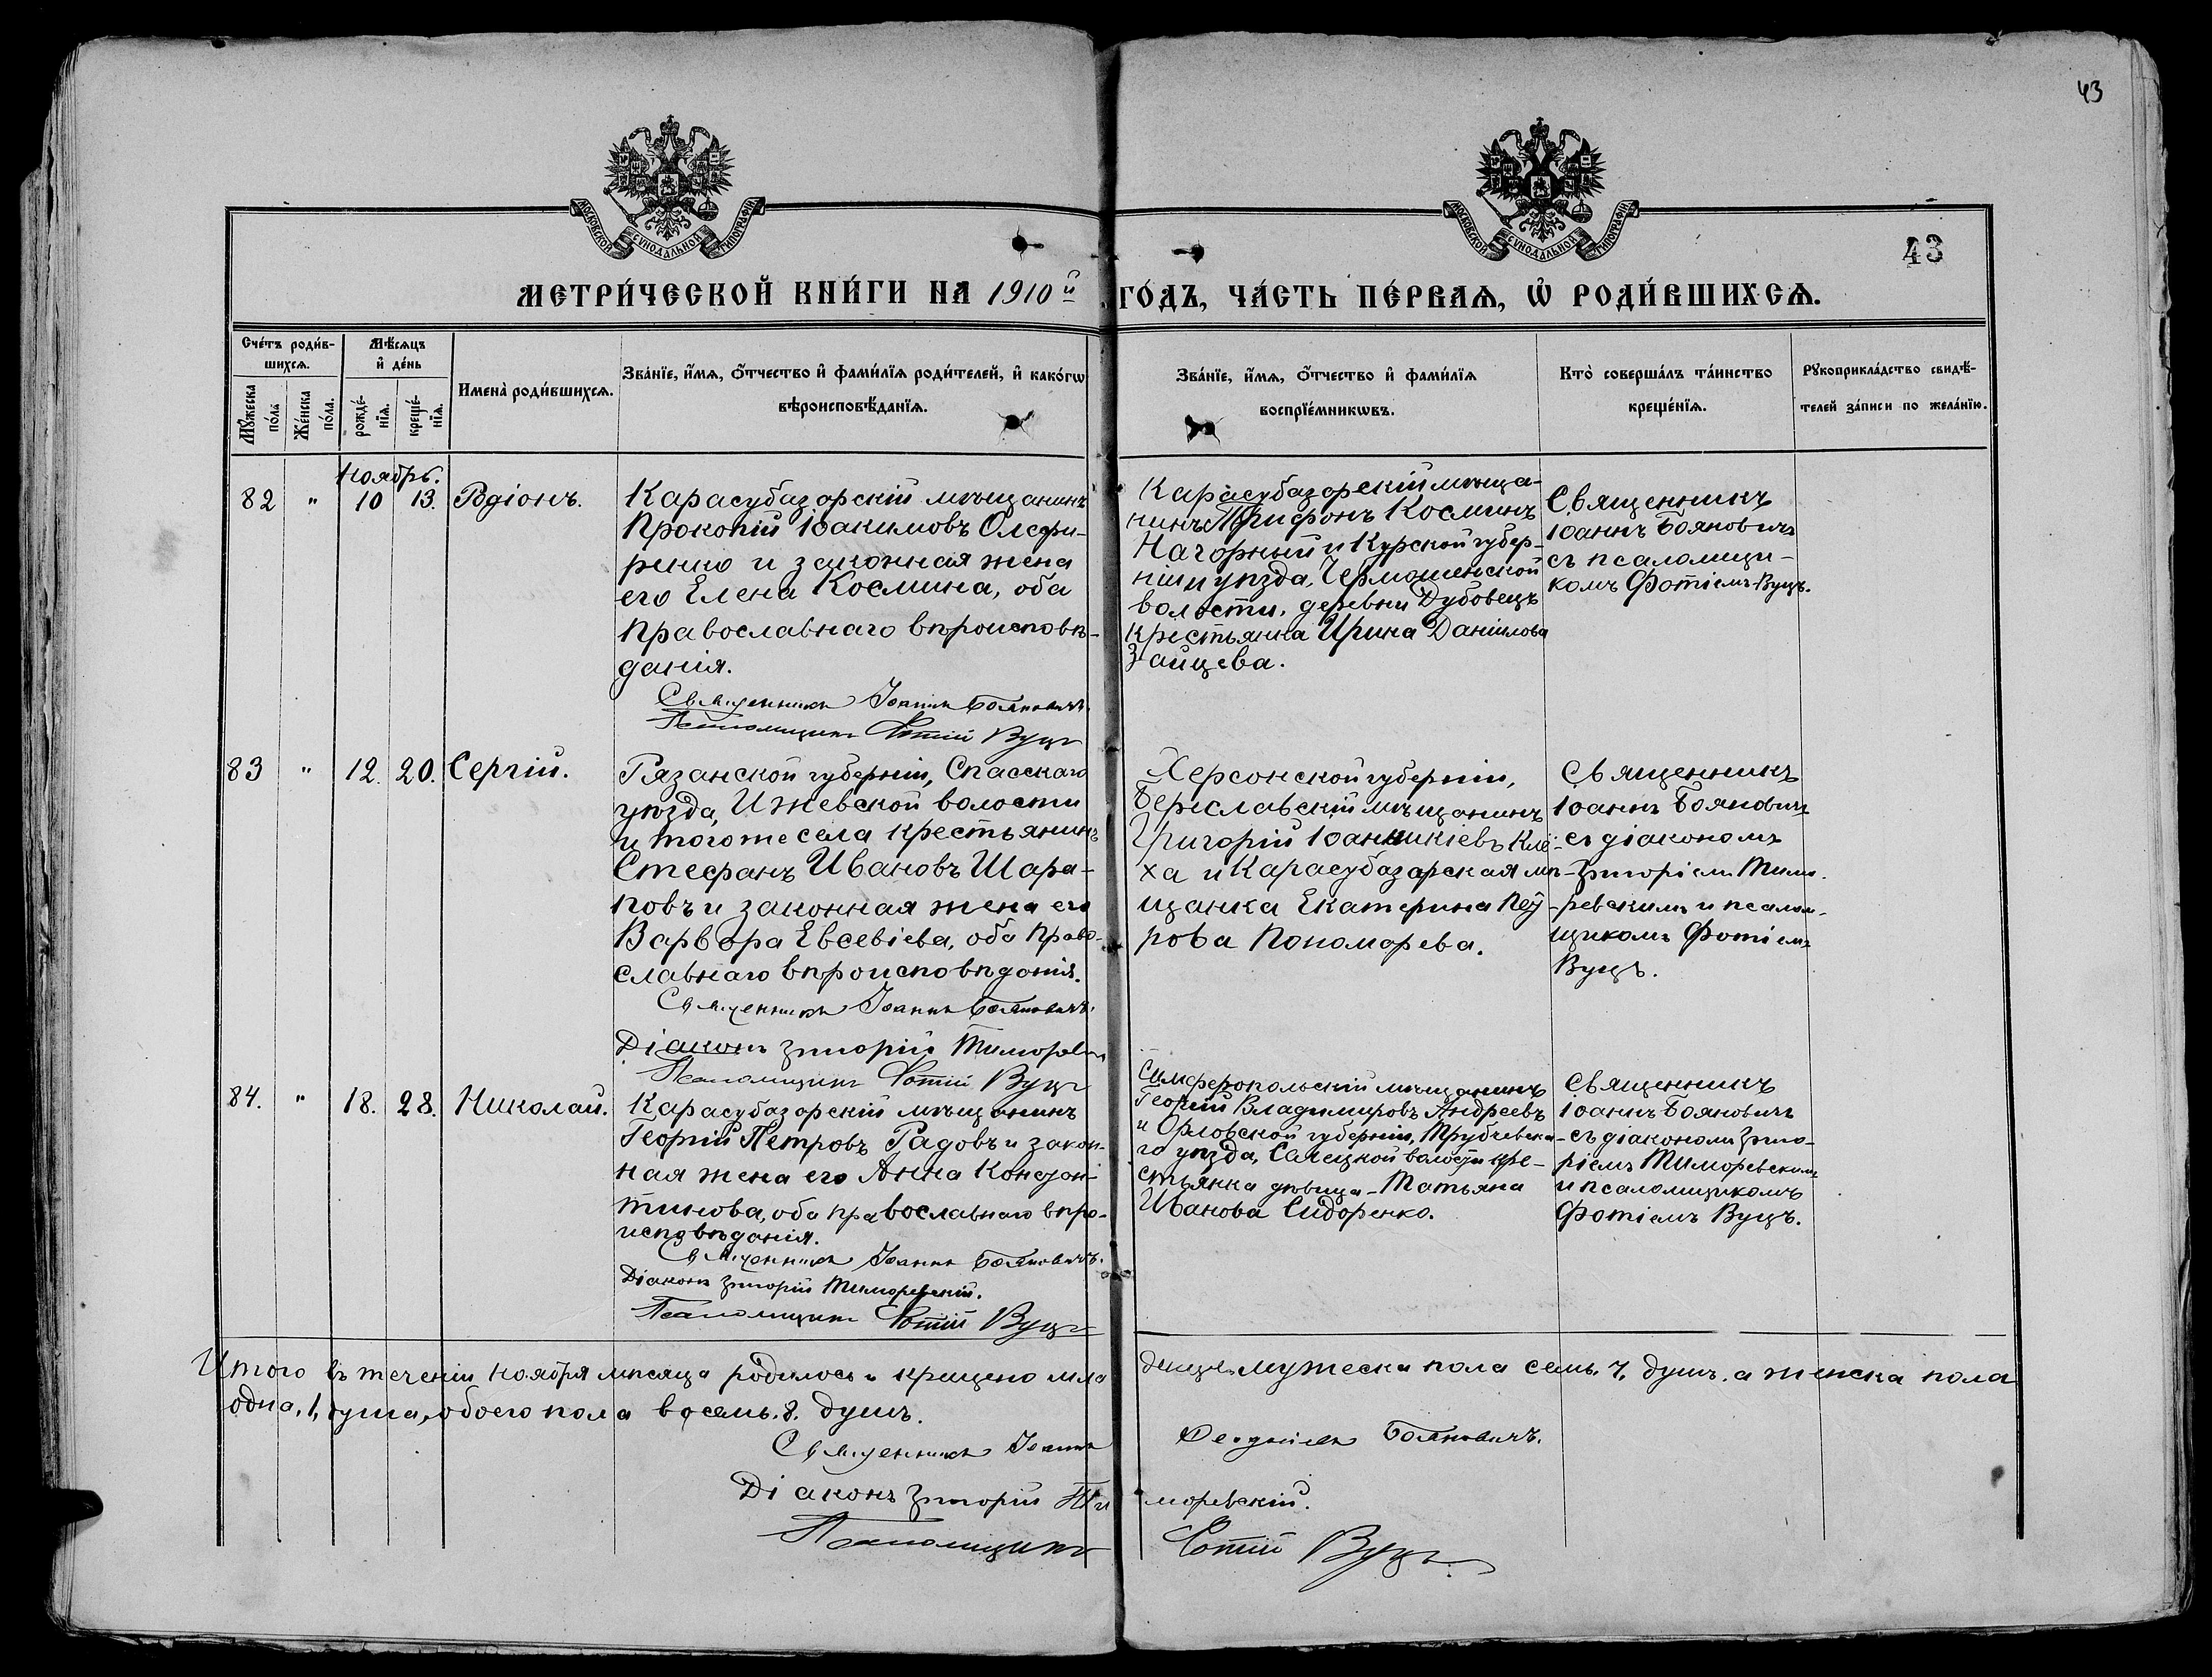 43
МОСКОВСКОЙ СѴНОДАЛЬНОЙ ТИПОГРАФІИ
МОСКОВСКОЙ СѴНОДАЛЬНОЙ ТИПОГРАФІИ
43
МЕТРИ́ЧЕСКОЙ КНИ́ГИ НА 1910й ГО́ДЪ, ЧА́СТЬ ПЕ́РВАѦ, Ѡ҆ РОДИ́ВШИХСѦ.
Сче́тъ роди́в-
шихсѧ.
Мꙋ́жеска по́ла
Же́нска по́ла.
Мѣ́сѧцъ
и҆ де́нь
рожде́-
нїѧ.
креще́-
нїѧ.
Имена̀ роди́вшихсѧ.
Зва́нїе, и҆́мѧ, ѻ҆́тчество и҆ фами́лїѧ роди́телей, и҆ како́гѡ
вѣроисповѣ́данїѧ.
Зва́нїе, и҆́мѧ, ѻ҆́тчество и҆ фами́лїѧ
воспрїе́мникѡвъ.
Кто̀ соверша́лъ та́инство
креще́нїѧ.
Рꙋкоприкла́дство свидѣ́-
телей за́писи по жела́нїю.
Ноябрь.
82 " 10 13. Родіонъ.
Карасубазарскій мѣщанинъ
Прокопій Іоакимовъ Олефи-
ренко и законная жена
его Елена Космина, оба
православнаго вѣроисповѣ-
данія.
Священникъ Іоаннъ Бояновичъ.
Псаломщикъ Фотій Вуцъ
Карасубазарскій мѣща-
нинъ Трифонъ Косминъ
Нагорный и Курской губер-
ніи и уѣзда, Чермошенской
волости, деревни Дубовецъ
крестьянка Ирина Даніилова
Зайцева.
Священникъ
Іоаннъ Бояновичъ
съ псаломщи-
комъ Фотіемъ Вуцъ.
83 " 12. 20. Сергій.
Рязанской губерніи, Спасскаго
уѣзда, Ижевской волости
и того же села крестьянинъ
Стефанъ Ивановъ Шара-
повъ и законная жена его
Варвара Евсевіева, оба право-
славнаго вѣроисповѣданія.
Священникъ Іоаннъ Бояновичъ.
Діаконъ Григорій
Псаломщикъ Фотій Вуцъ
Херсонской губерніи,
Бериславскій мѣщанинъ
Григорій Іоанникіевъ Клё-
ха и Карасубазарская мѣ-
щанка Екатерина
рова Пономарева.
Священникъ
Іоаннъ Бояновичъ
съ діакономъ
Григоріемъ Тимо-
ревскимъ и псалом-
щикомъ Фотіемъ
Вуцъ.
84. " 18. 28. Николай.
Карасубазарскій мѣщанинъ
Георгій Петровъ Радовъ и закон-
ная жена его Анна Констан-
тинова, оба православнаго вѣро-
исповѣданія.
Священникъ Іоаннъ Бояновичъ.
Діаконъ Григорій Тиморевскій.
Псаломщикъ Фотій Вуцъ
Симферопольскій мѣщанинъ
Георгій Владимировъ Андреевъ
и Орловской губерніи, Трубчевска-
го уѣзда, Селецкой волости кре-
стьянка дѣвица Татьяна
Иванова Сидоренко.
Священникъ
Іоаннъ Бояновичъ
съ діакономъ Григо-
ріемъ Тиморевскимъ
и псаломщикомъ
Фотіемъ Вуцъ.
Итого въ теченіи ноября мѣсяца родилось и крещено мла денцевъ мужеска пола семь, 7, душъ, а женска пола
одна, 1, душа, обоего пола восемь, 8, душъ.
Священникъ Іоаннъ Бояновичъ.
Діаконъ Григорій Ти моревскій.
Псаломщикъ Фотій Вуцъ.